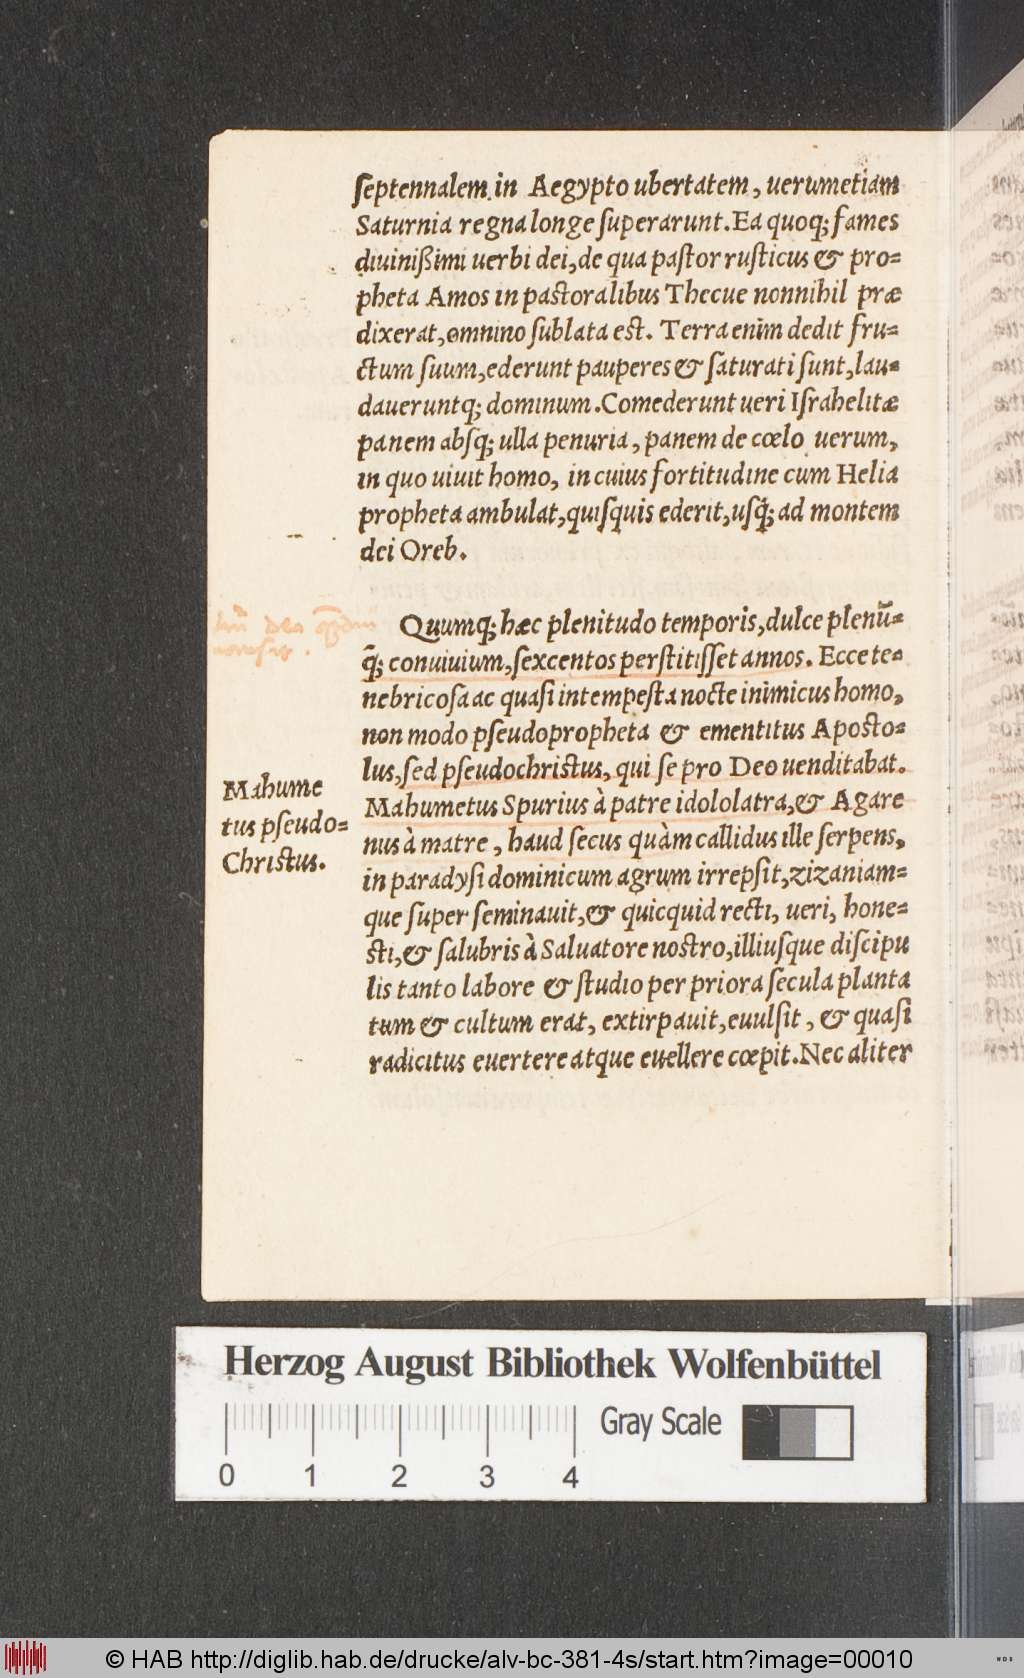 ſeptennalem in Aegypto ubertatem, uerumetiam
Saturnia regna longe ſuperarunt. Ea quoq; fames
diuinißimi uerbi dei, de qua paſtor ruſticus & pro=
pheta Amos in paſtoralibus Thecue nonnihil præ
dixerat, omnino ſublata eſt. Terra enim dedit fru=
ctum ſuum, ederunt pauperes & ſaturati ſunt, lau=
daueruntq; dominum. Comederunt ueri Iſrahelitæ
panem abſq; ulla penuria, panem de cœlo uerum,
in quo uiuit homo, in cuius fortitudine cum Helia
propheta ambulat, quiſquis ederit, uſq; ad montem
dei Oreb.
Quumq; hæc plenitudo temporis, dulce plenũ=
q̃; conuiuium, ſexcentos perſtitiſſet annos. Ecce te=
nebricoſa ac quaſi intempeſta nocte inimicus homo,
non modo pſeudopropheta & ementitus Apoſto=
lus, ſed pſeudochriſtus, qui ſe pro Deo uenditabat.
Mahume
tus pſeudo=
Chriſtus.
Mahumetus Spurius à patre idololatra, & Agare
nus à matre, haud ſecus quàm callidus ille ſerpens,
in paradyſi dominicum agrum irrepſit, zizaniam=
que ſuper ſeminauit, & quicquid recti, ueri, hone=
ſti, & ſalubris à Saluatore noſtro, illiuſque diſcipu
lis tanto labore & ſtudio per priora ſecula planta
tum & cultum erat, extirpauit, euulſit, & quaſi
radicitus euertere atque euellere cœpit. Nec aliter
Herzog August Bibliothek Wolfenbüttel
Gray Scale
0 1 2 3 4
© HAB http://diglib.hab.de/drucke/alv-bc-381-4s/start.htm?image=00010